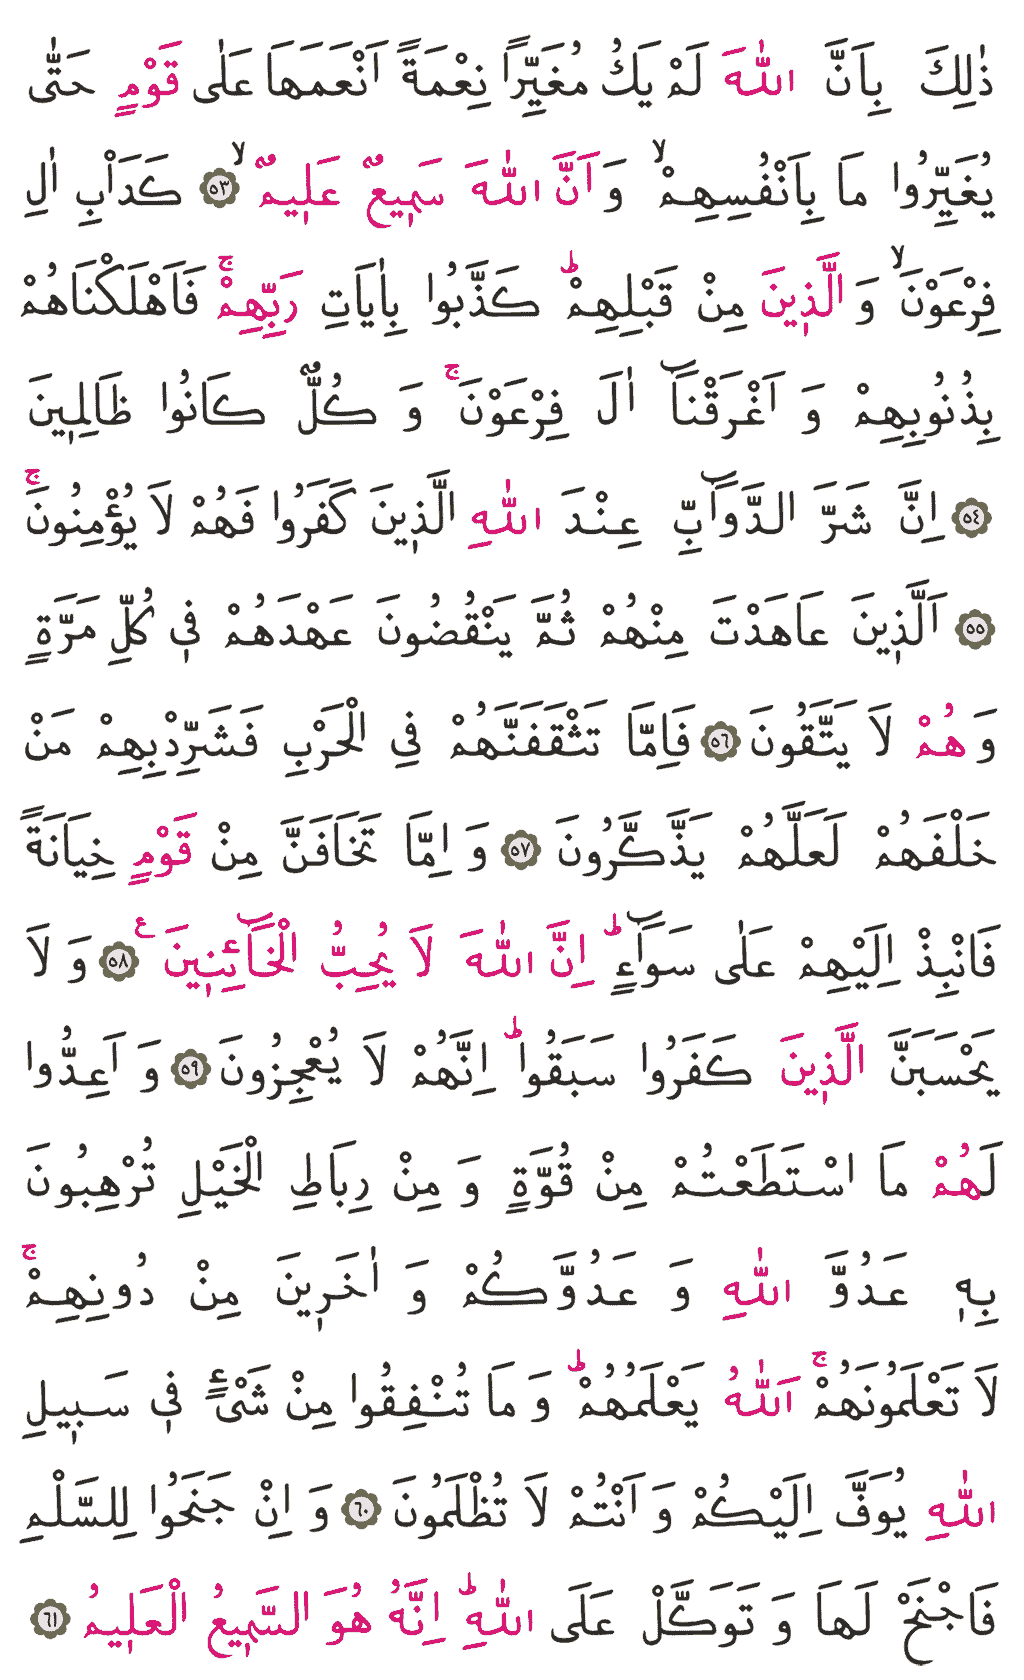 ذٰلِكَ بِاَنَّ اللّٰهَ لَمْ يَكُ مُغَيِّرًا نِعْمَةً اَنْعَمَهَا عَلٰى قَوْمٍ حَتّٰى
يُغَيِّرُوا مَا بِاَنْفُسِهِمْۙ وَ اَنَّ اللّٰهَ سَم۪يعٌ عَل۪يمٌۙ ﴿٥٣﴾ كَدَاْبِ اٰلِ
فِرْعَوْنَۙ وَ الَّذ۪ينَ مِنْ قَبْلِهِمْۜ كَذَّبُوا بِاٰيَاتِ رَبِّهِمْۚ فَاَهْلَكْنَاهُمْ
بِذُنُوبِهِمْ وَ اَغْرَقْنَٓا اٰلَ فِرْعَوْنَۚ وَ كُلٌّ كَانُوا ظَالِم۪ينَ
﴿٥٤﴾ اِنَّ شَرَّ الدَّوَٓابِّ عِنْدَ اللّٰهِ الَّذ۪ينَ كَفَرُوا فَهُمْ لَا يُؤْمِنُونَۚ
﴿٥٥﴾ اَلَّذ۪ينَ عَاهَدْتَ مِنْهُمْ ثُمَّ يَنْقُضُونَ عَهْدَهُمْ ف۪ي كُلِّ مَرَّةٍ
وَ هُمْ لَا يَتَّقُونَ ﴿٥٦﴾ فَاِمَّا تَثْقَفَنَّهُمْ فِي الْحَرْبِ فَشَرِّدْ بِهِمْ مَنْ
خَلْفَهُمْ لَعَلَّهُمْ يَذَّكَّرُونَ ﴿٥٧﴾ وَ اِمَّا تَخَافَنَّ مِنْ قَوْمٍ خِيَانَةً
فَانْبِذْ اِلَيْهِمْ عَلٰى سَوَٓاءٍۜ اِنَّ اللّٰهَ لَا يُحِبُّ الْخَٓائِن۪ينَ۟ ﴿٥٨﴾ وَ لَا
يَحْسَبَنَّ الَّذ۪ينَ كَفَرُوا سَبَقُواۜ اِنَّهُمْ لَا يُعْجِزُونَ ﴿٥٩﴾ وَ اَعِدُّوا
لَهُمْ مَا اسْتَطَعْتُمْ مِنْ قُوَّةٍ وَ مِنْ رِبَاطِ الْخَيْلِ تُرْهِبُونَ
بِه۪ عَدُوَّ اللّٰهِ وَ عَدُوَّكُمْ وَ اٰخَر۪ينَ مِنْ دُونِهِمْۚ
لَا تَعْلَمُونَهُمْۚ اَللّٰهُ يَعْلَمُهُمْۜ وَ مَا تُنْفِقُوا مِنْ شَيْءٍ ف۪ي سَب۪يلِ
اللّٰهِ يُوَفَّ اِلَيْكُمْ وَ اَنْتُمْ لَا تُظْلَمُونَ ﴿٦٠﴾ وَ اِنْ جَنَحُوا لِلسَّلْمِ
فَاجْنَحْ لَهَا وَ تَوَكَّلْ عَلَى اللّٰهِۜ اِنَّهُ هُوَ السَّم۪يعُ الْعَل۪يمُ ﴿٦١﴾